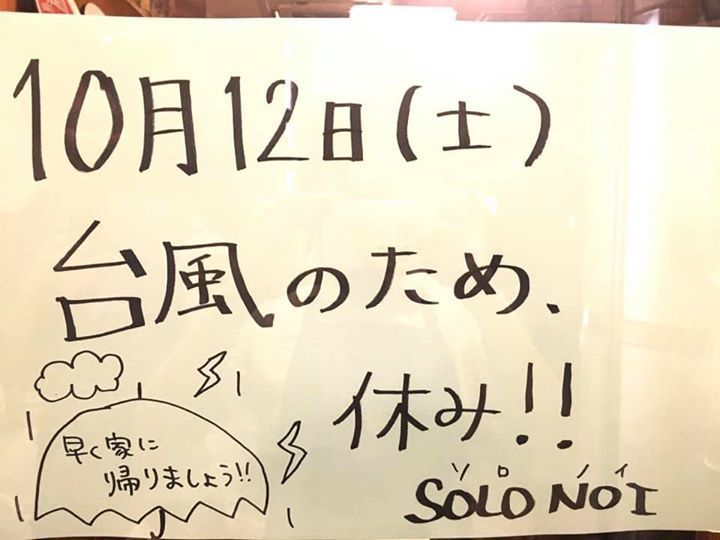 10月12日(土)
台風のため、
休み!!
早く家に
帰りましょう!!
ソロノイ
SOLO NOI